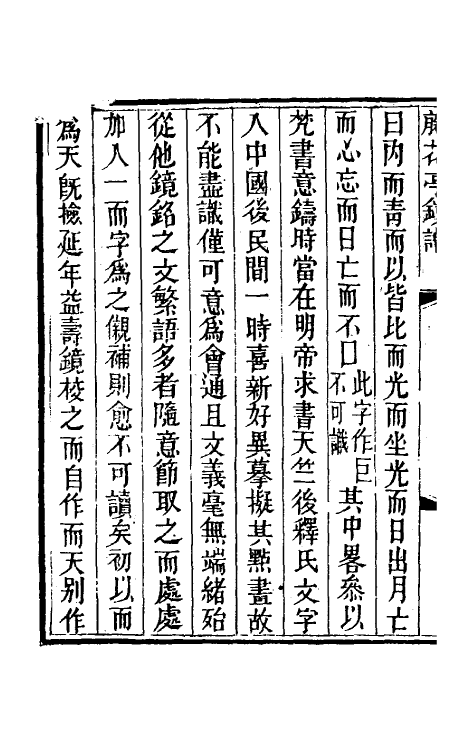 日內而靑而以皆比而光而坐光而日出月亡
而心忘而日亡而不口此字作巨不可識其中畧參以
梵書意鑄時當在明帝求書天竺後釋氏文字
入中國後民間一時喜新好異摹擬其點畫故
不能盡識僅可意爲會通且文義毫無端緒殆
從他鏡銘之文繁語多者隨意節取之而處處
加入一而字爲之儭補則愈不可讀矣初以而
爲天旣檢延年益壽鏡校之而自作而天別作